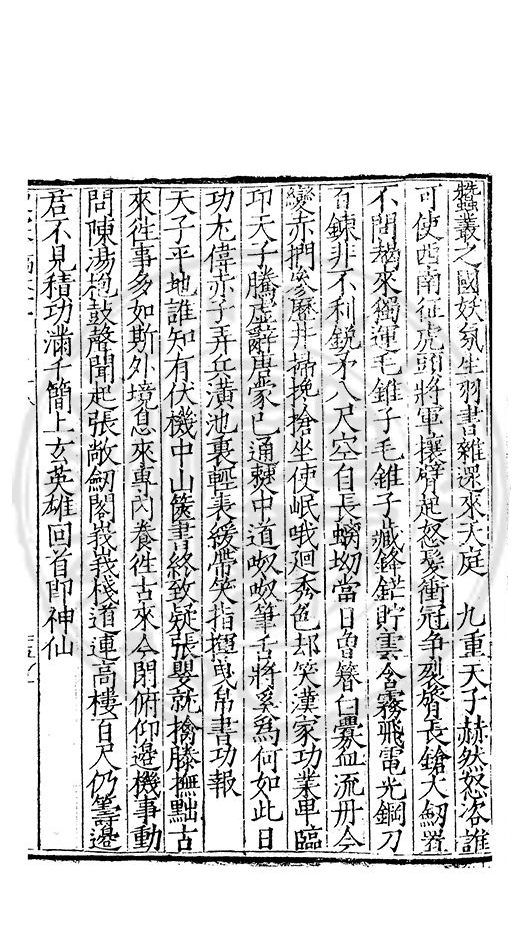 蠶叢之國妖氛生羽書雜遝來天庭　九重天子赫然怒咨誰
可使西南征虎頭將軍攘臂起怒髮衝冠爭裂眥長鎗大劒置
不問朅來獨運毛錐子毛錐子藏鋒鋩貯雲含霧飛電光鋼刀
百鍊非不利銳矛八尺空自長螭坳當日曾簪白釁血流丹今
變赤捫參歷井掃攙搶坐使岷峨廻秀色却笑漢家功業卑臨
卭天子騰虛辭唐家已通僰中道呶呶筆舌將奚爲何如此日
功尤偉赤子弄兵潢池裏輕裘緩帶笑指揮曵帛書功報
天子平地誰知有伏機中山篋書終致疑張嬰就擒滕撫黜古
來徃事多如斯外境息來專內養徃古來今閉俯仰邊機事動
問陳湯枹鼓聲聞起張敞劒閣峩峩棧道連高樓百尺仍籌邊
君不見積功滿千簡上玄英雄回首卽神仙